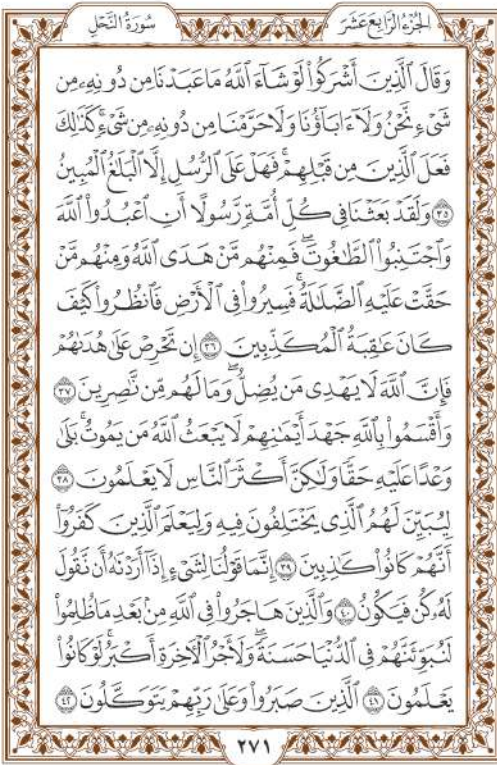 الجزء الرابع عشر
سورة النحل
وَقَالَ ٱلَّذِينَ أَشْرَكُوا۟ لَوْ شَآءَ ٱللَّهُ مَا عَبَدْنَا مِن دُونِهِۦ مِن
شَىْءٍ نَّحْنُ وَلَآ ءَابَآؤُنَا وَلَا حَرَّمْنَا مِن دُونِهِۦ مِن شَىْءٍ ۚ كَذَٰلِكَ
فَعَلَ ٱلَّذِينَ مِن قَبْلِهِمْ ۚ فَهَلْ عَلَى ٱلرُّسُلِ إِلَّا ٱلْبَلَٰغُ ٱلْمُبِينُ
٣٥ وَلَقَدْ بَعَثْنَا فِى كُلِّ أُمَّةٍ رَّسُولًا أَنِ ٱعْبُدُوا۟ ٱللَّهَ
وَٱجْتَنِبُوا۟ ٱلطَّٰغُوتَ ۖ فَمِنْهُم مَّنْ هَدَى ٱللَّهُ وَمِنْهُم مَّنْ
حَقَّتْ عَلَيْهِ ٱلضَّلَٰلَةُ ۚ فَسِيرُوا۟ فِى ٱلْأَرْضِ فَٱنظُرُوا۟ كَيْفَ
كَانَ عَٰقِبَةُ ٱلْمُكَذِّبِينَ ٣٦ إِن تَحْرِصْ عَلَىٰ هُدَىٰهُمْ
فَإِنَّ ٱللَّهَ لَا يَهْدِى مَن يُضِلُّ ۖ وَمَا لَهُم مِّن نَّٰصِرِينَ ٣٧
وَأَقْسَمُوا۟ بِٱللَّهِ جَهْدَ أَيْمَٰنِهِمْ ۙ لَا يَبْعَثُ ٱللَّهُ مَن يَمُوتُ ۚ بَلَىٰ
وَعْدًا عَلَيْهِ حَقًّا وَلَٰكِنَّ أَكْثَرَ ٱلنَّاسِ لَا يَعْلَمُونَ ٣٨
لِيُبَيِّنَ لَهُمُ ٱلَّذِى يَخْتَلِفُونَ فِيهِ وَلِيَعْلَمَ ٱلَّذِينَ كَفَرُوٓا۟
أَنَّهُمْ كَانُوا۟ كَٰذِبِينَ ٣٩ إِنَّمَا قَوْلُنَا لِشَىْءٍ إِذَآ أَرَدْنَٰهُ أَن نَّقُولَ
لَهُۥ كُن فَيَكُونُ ٤٠ وَٱلَّذِينَ هَاجَرُوا۟ فِى ٱللَّهِ مِنۢ بَعْدِ مَا ظُلِمُوا۟
لَنُبَوِّئَنَّهُمْ فِى ٱلدُّنْيَا حَسَنَةً ۖ وَلَأَجْرُ ٱلْءَاخِرَةِ أَكْبَرُ ۚ لَوْ كَانُوا۟
يَعْلَمُونَ ٤١ ٱلَّذِينَ صَبَرُوا۟ وَعَلَىٰ رَبِّهِمْ يَتَوَكَّلُونَ ٤٢
٢٧١